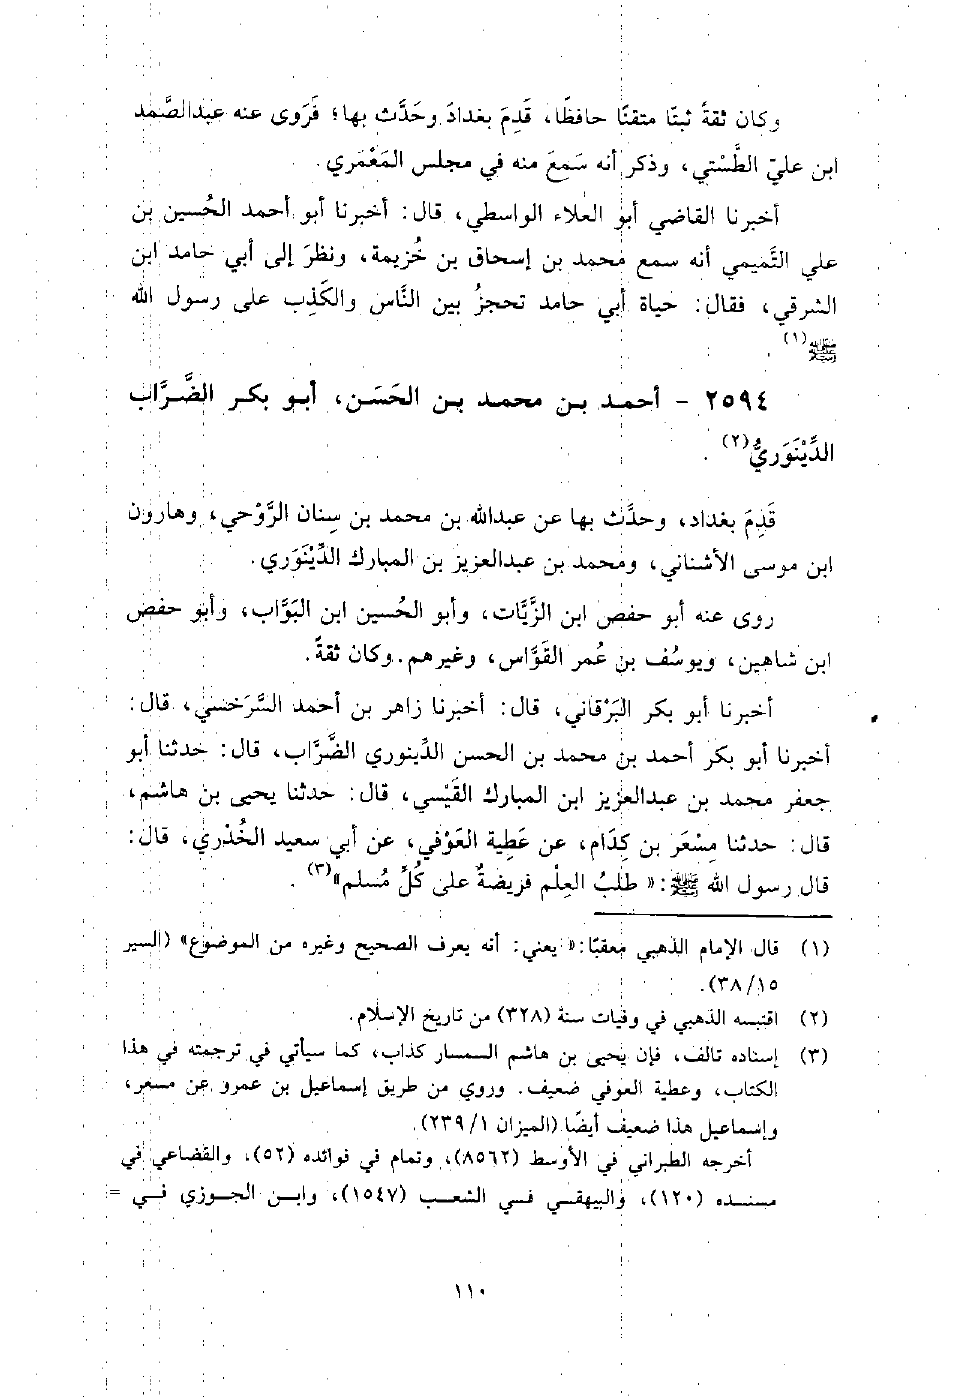 وكان ثقةً ثبتًا متقنًا حافظًا، قَدِمَ بغدادَ وحَدَّث بها؛ فَروى عنه عبدالصَّمد
ابن عليّ الطَّسْتي، وذكر أنه سَمعَ منه في مجلس المَعْمَري.
أخبرنا القاضي أبو العلاء الواسطي، قال: أخبرنا أبو أحمد الحُسين بن
علي التَّميمي أنه سمع محمد بن إسحاق بن خُزيمة، ونظرَ إلى أبي حامد ابن
الشرقي، فقال: حياة أبي حامد تحجزُ بين النَّاس والكَذِب على رسول الله
ﷺ(١).
٢٥٩٤ - أحمد بن محمد بن الحَسَن، أبو بكر الضَّرَّاب
الدِّيْنَوَريُّ(٢).
قَدِمَ بغداد، وحدَّث بها عن عبدالله بن محمد بن سِنان الرَّوْحي، وهارون
ابن موسى الأشناني، ومحمد بن عبدالعزيز بن المبارك الدِّيْنَوَري.
روى عنه أبو حفص ابن الزَّيَّات، وأبو الحُسين ابن البَوَّاب، وأبو حفص
ابن شاهين، ويوسُف بن عُمر القَوَّاس، وغيرهم. وكان ثقةً.
أخبرنا أبو بكر البَرْقاني، قال: أخبرنا زاهر بن أحمد السَّرَخسي، قال:
أخبرنا أبو بكر أحمد بن محمد بن الحسن الدِّينوري الضَّرَّاب، قال: حدثنا أبو
جعفر محمد بن عبدالعزيز ابن المبارك القَيْسي، قال: حدثنا يحيى بن هاشم،
قال: حدثنا مِسْعَر بن كِدَام، عن عَطِية العَوْفي، عن أبي سعيد الخُدْري، قال:
قال رسول الله ﷺ: «طَلَبُ العِلْم فريضةٌ على كُلِّ مُسلم»(٣).
(١) قال الإمام الذهبي معقبًا: «يعني: أنه يعرف الصحيح وغيره من الموضوع» (السير
١٥/ ٣٨).
(٢) اقتبسه الذهبي في وفيات سنة (٣٢٨) من تاريخ الإسلام.
(٣) إسناده تالف، فإن يحيى بن هاشم السمسار كذاب، كما سيأتي في ترجمته في هذا
الكتاب، وعطية العوفي ضعيف. وروي من طريق إسماعيل بن عمرو عن مسعر،
وإسماعيل هذا ضعيف أيضًا (الميزان ١/ ٢٣٩).
أخرجه الطبراني في الأوسط (٨٥٦٢)، وتمام في فوائده (٥٢)، والقضاعي في
مسنده (١٢٠)، والبيهقي في الشعب (١٥٤٧)، وابن الجوزي في =
١١٠